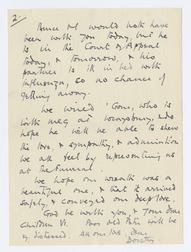 2.
Bruce wd would have
been with you today, but he
is in the Court of Appeal
today, & tomorrow, & his
partner is ill in bed with
influenza, so no chance of
getting away.
We wired Tom, who is
with Meg at
hope he will be able to show
the love, & sympathy, & admiration
we all feel by representing us
at the funeral.
We hope our wreath was a
beautiful one, & that it arrived
safely, & conveyed our deep love.
God be with you & your dear
children
All our love, dear
Dorothy